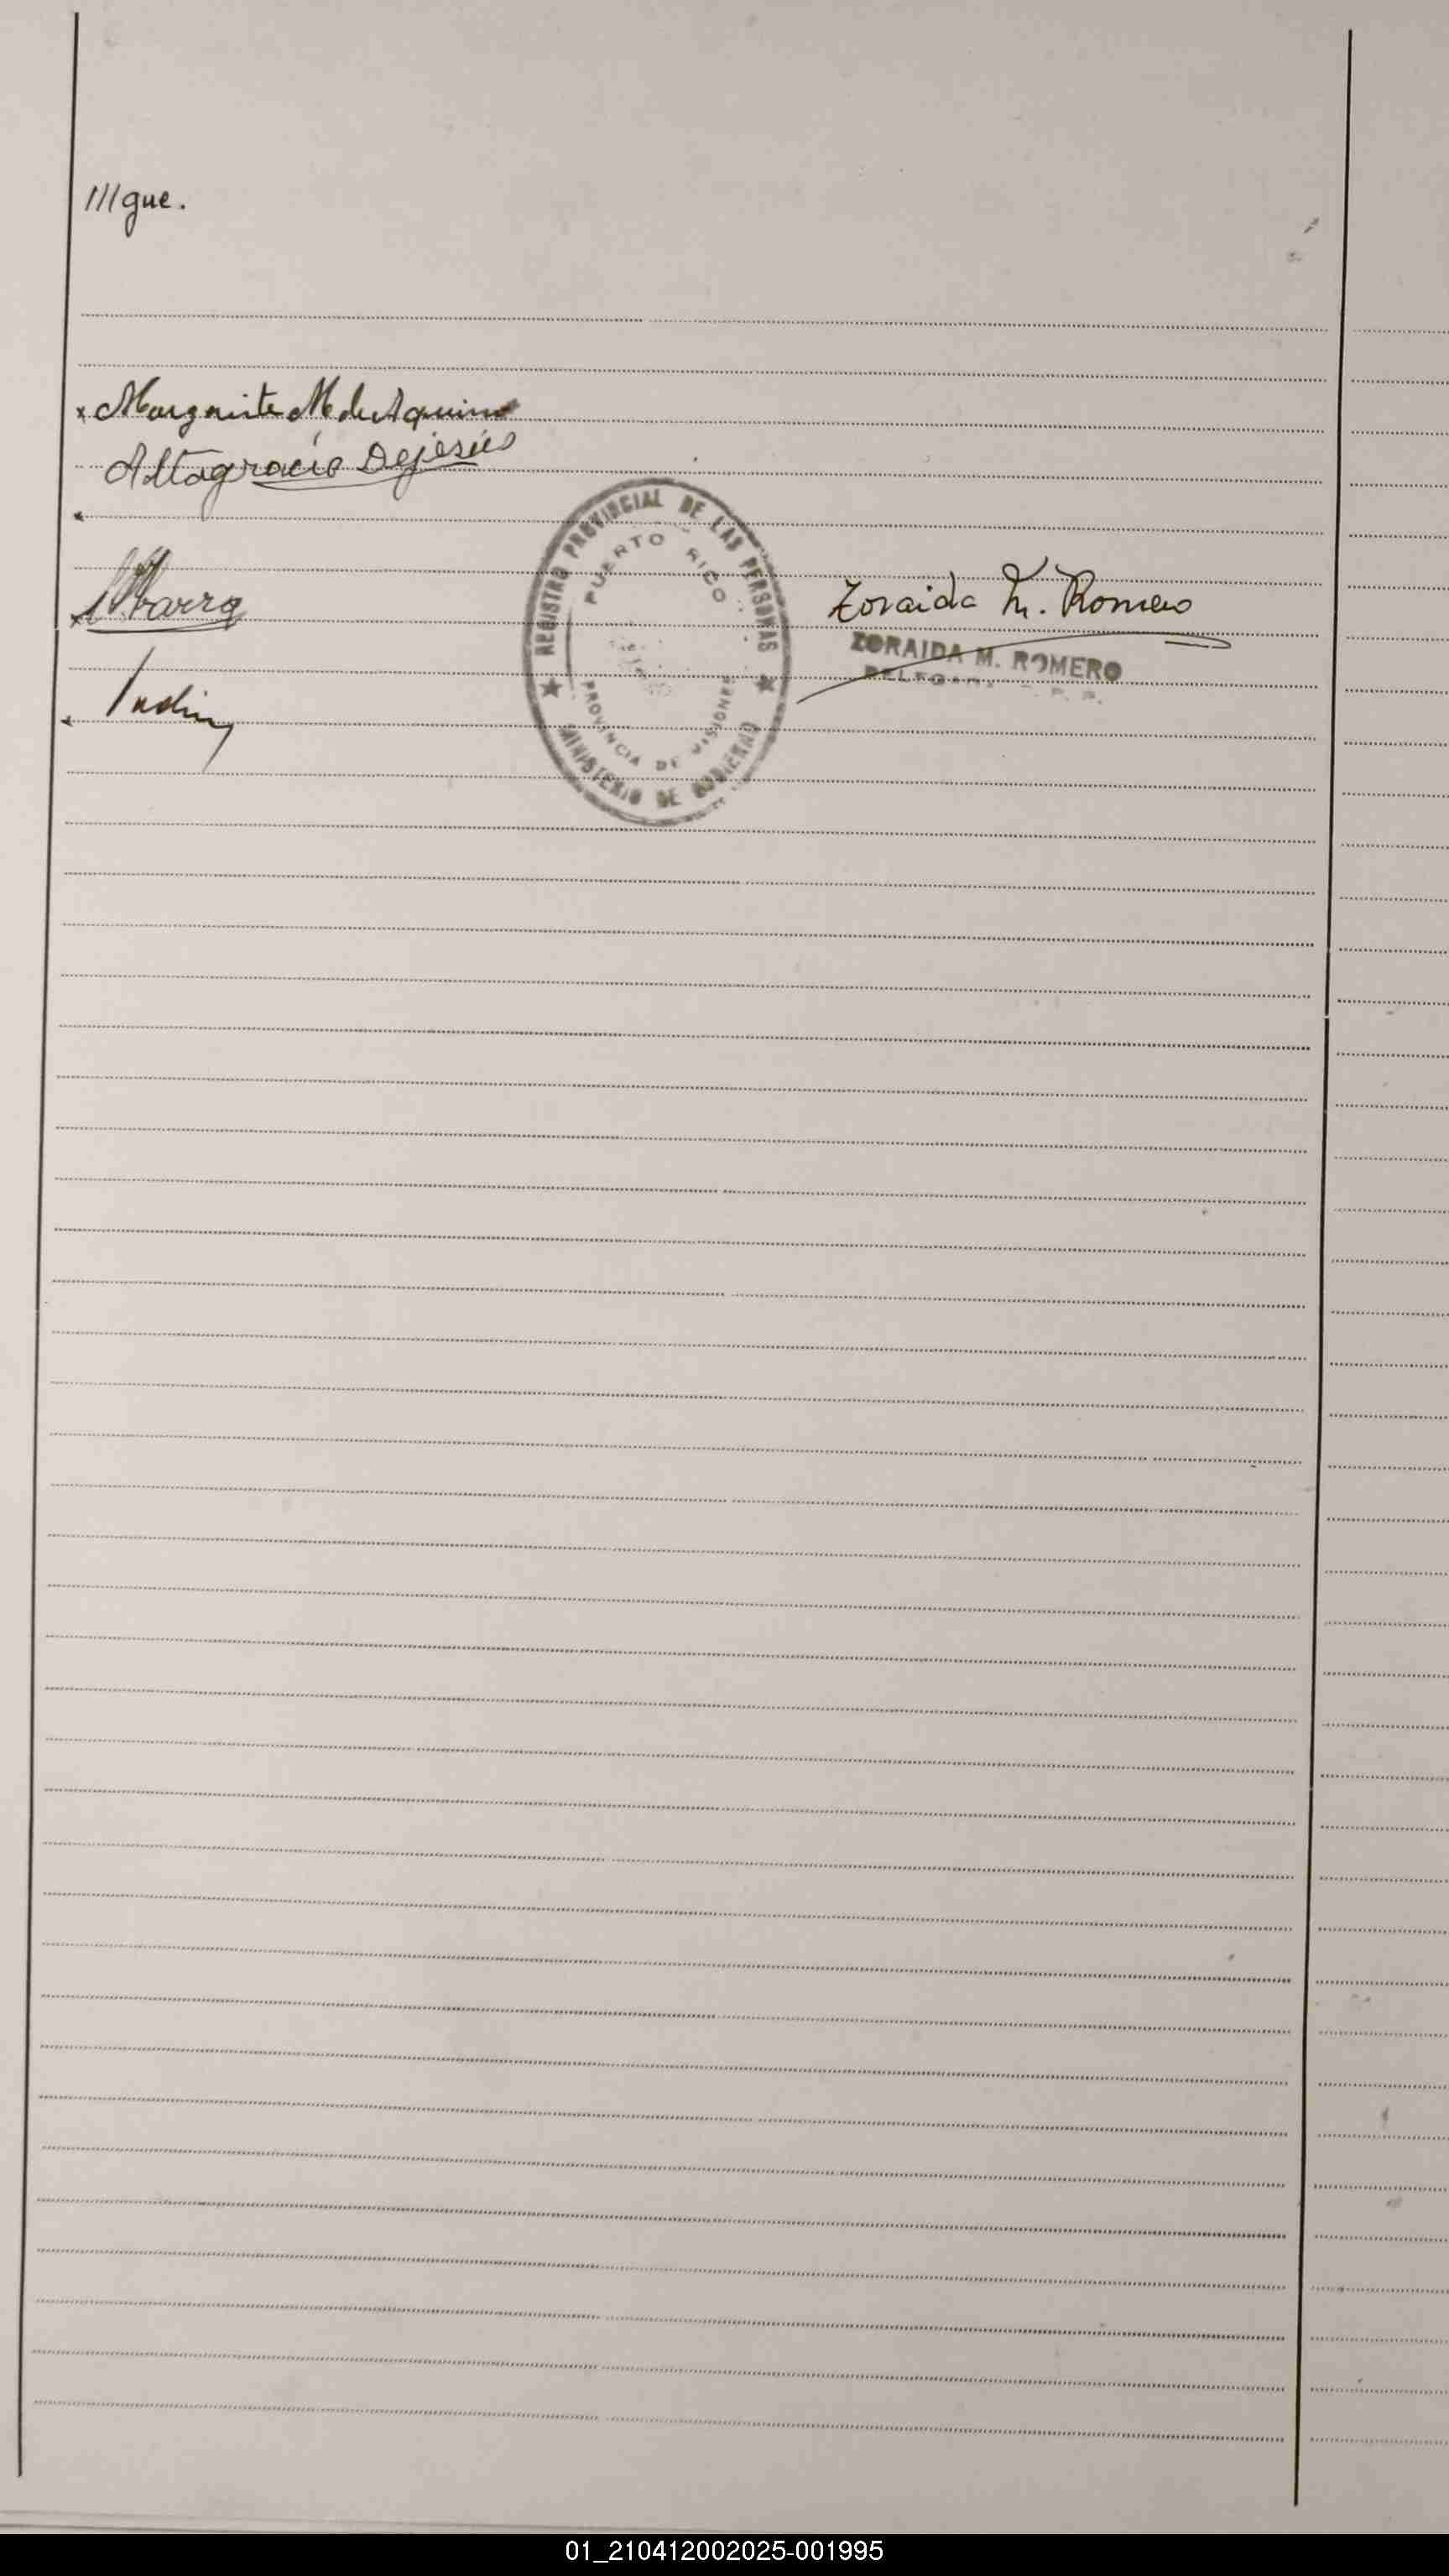 ///gue.
Margarita M de Aquino
Altagracia Dejesús
Ybarra
REGISTRO PROVINCIAL DE LAS PERSONAS
PUERTO RICO
PROVINCIA DE MISIONES
MINISTERIO DE GOBIERNO
Zoraida M. Romero
ZORAIDA M. ROMERO
01_210412002025-001995